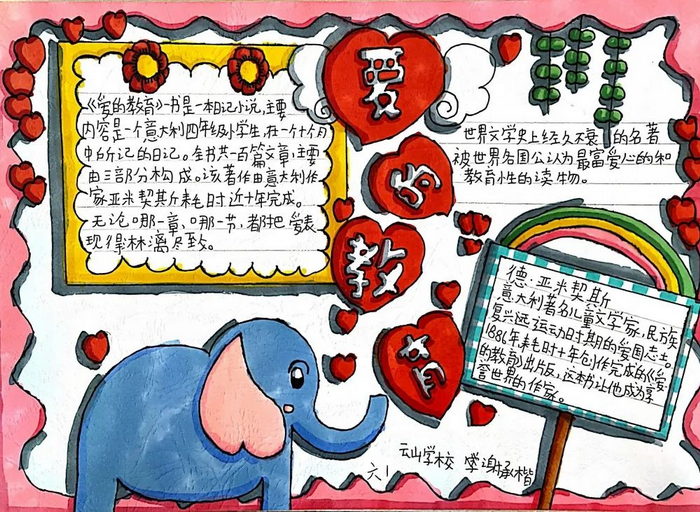 爱的教育
《爱的教育》一书是一本日记小说,主要
内容是一个意大利四年级小学生,在一个十个月
中所记的日记。全书共一百篇文章,主要
由三部分构成。该著作由意大利作
家亚米契斯耗时近十年完成。
无论哪一章、哪一节,都把爱表
现得淋漓尽致。
世界文学史上经久不衰的名著
被世界各国公认为最富爱心的和
教育性的读物。
德·亚米契斯
意大利著名儿童文学家,民族
复兴运动时期的爱国志士。
1886年耗时十年创作完成的《爱
的教育》出版,这本书让他成为享
誉世界的作家。
云山学校 谢承楷
六1